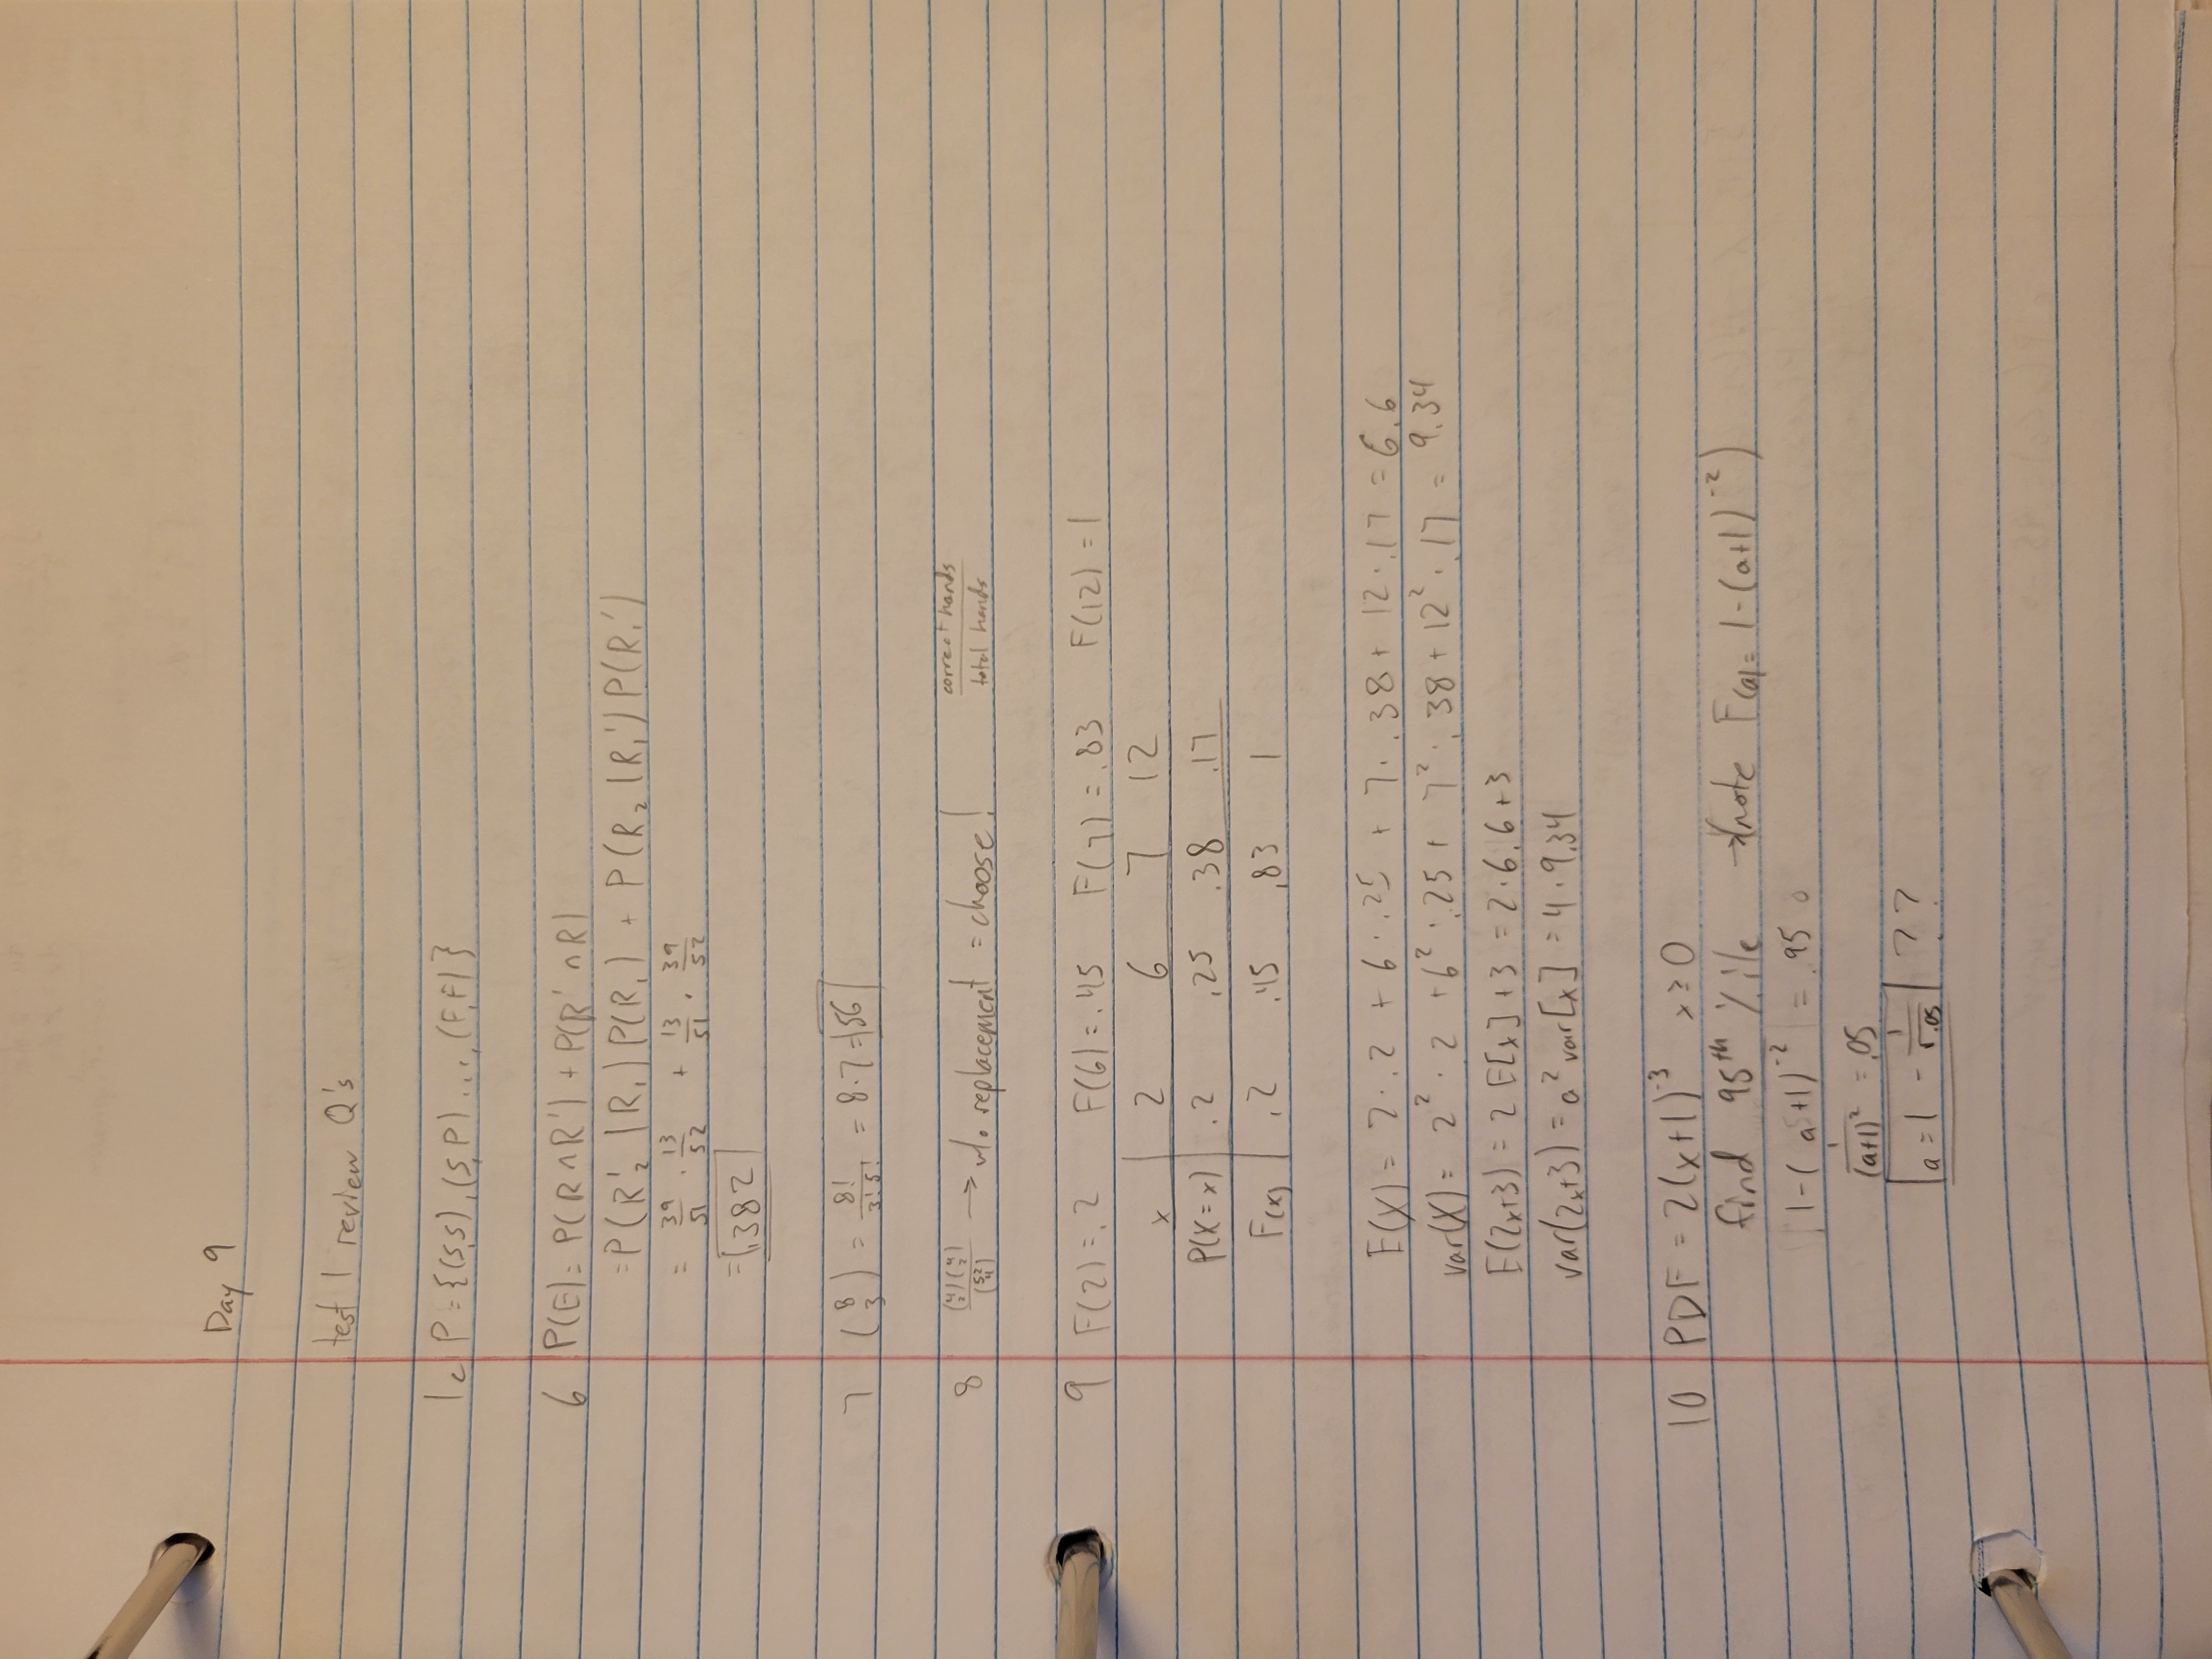 Day 9
test 1 review Q's
1c P = {(S,S), (S,P) ..., (F,F)}
6 P(E) = P(R ∩ R') + P(R' ∩ R)
= P(R'₂ | R₁) P(R₁) + P(R₂ | R₁') P(R₁')
= 39/51 · 13/52 + 13/51 · 39/52
= .382
7 (8 3) = 8!/3!5! = 8·7 = 56
8 (4 2)(4 2)/(52 4) → w/o replacement = choose! correct hands/total hands
9 F(2) = .2 F(6) = .45 F(7) = .83 F(12) = 1
x 2 6 7 12
P(X = x) .2 .25 .38 .17
F(x) .2 .45 .83 1
E(X) = 2 · .2 + 6 · .25 + 7 · .38 + 12 · .17 = 6.6
var(X) = 2² · 2 + 6² · .25 + 7² · .38 + 12² · .17 = 9.34
E(2x+3) = 2 E[x] + 3 = 2·6.6+3
var(2x+3) = a² var[x] = 4 · 9.34
10 PDF = 2(x+1)⁻³ x ≥ 0
find 95th %ile → (note F(a) = 1-(a+1)⁻²)
1-(a+1)⁻² = .95
1/(a+1)² = .05
a = 1 - 1/√.05 ??